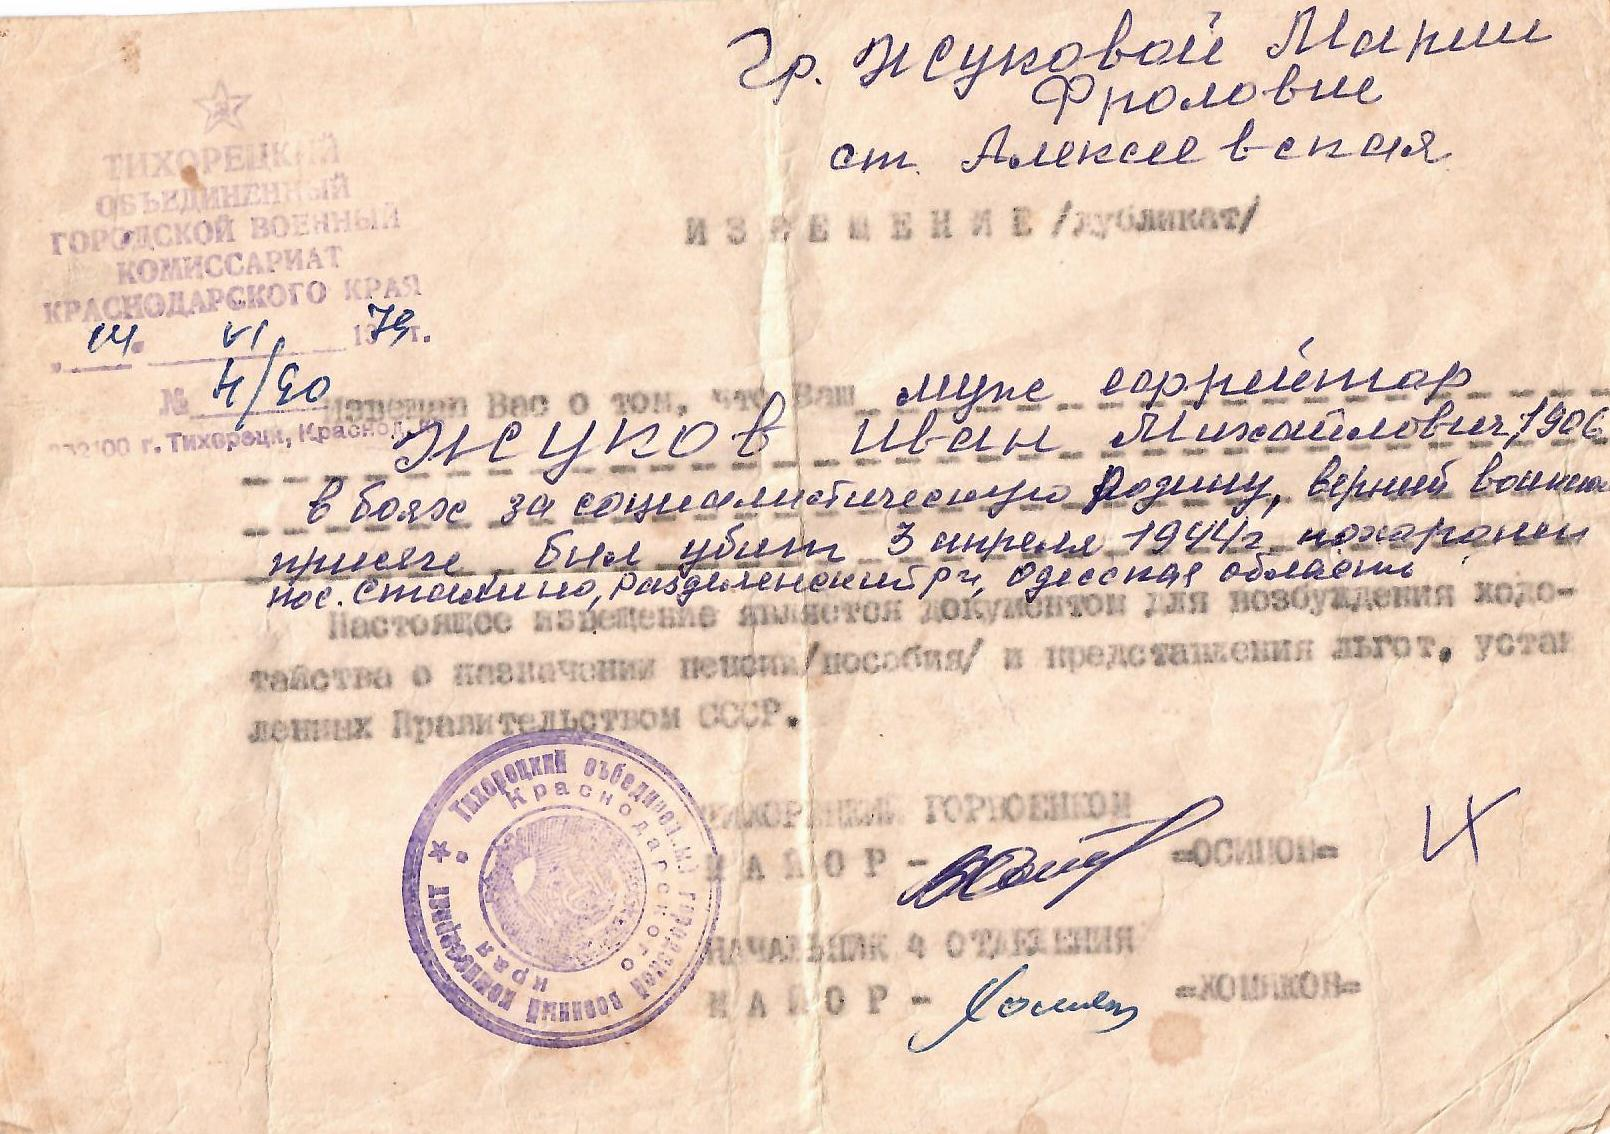 Гр. Жуковой Марии
Фроловне
ст. Алексеевская
ТИХОРЕЦКИЙ
ОБЪЕДИНЕННЫЙ
ГОРОДСКОЙ ВОЕННЫЙ
КОМИССАРИАТ
КРАСНОДАРСКОГО КРАЯ
„14" VI 1979 г.
№ 4/90
г. Тихорецк, Краснод.
ИЗВЕЩЕНИЕ /дубликат/
Извещаю Вас о том, что Ваш муж ефрейтор
Жуков Иван Михайлович, 1906
в боях за социалистическую Родину, верный воинской
присяге был убит 3 апреля 1944г похоронен
пос. Сталино, Разделенский р-н, Одесская область
Настоящее извещение является документом для возбуждения ходо-
тайства о назначении пенсии/пособия/ и представления льгот, устан
ленных Правительством СССР.
ТИХОРЕЦКИЙ ГОРВОЕНКОМ
МАЙОР - =ОСИПОВ=
НАЧАЛЬНИК 4 ОТДЕЛЕНИЯ
МАЙОР - Хомяк =ХОМЯКОВ=
Тихорецкий объединен.ый городской военный комиссариат
Краснодарского края